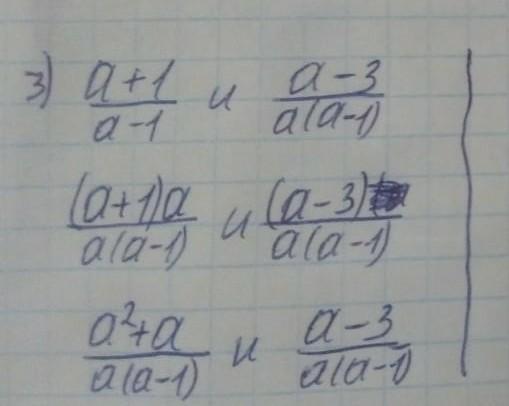 3) (a+1)/(a-1) и (a-3)/(a(a-1))
((a+1)a)/(a(a-1)) и (a-3)/(a(a-1))
(a²+a)/(a(a-1)) и (a-3)/(a(a-1))